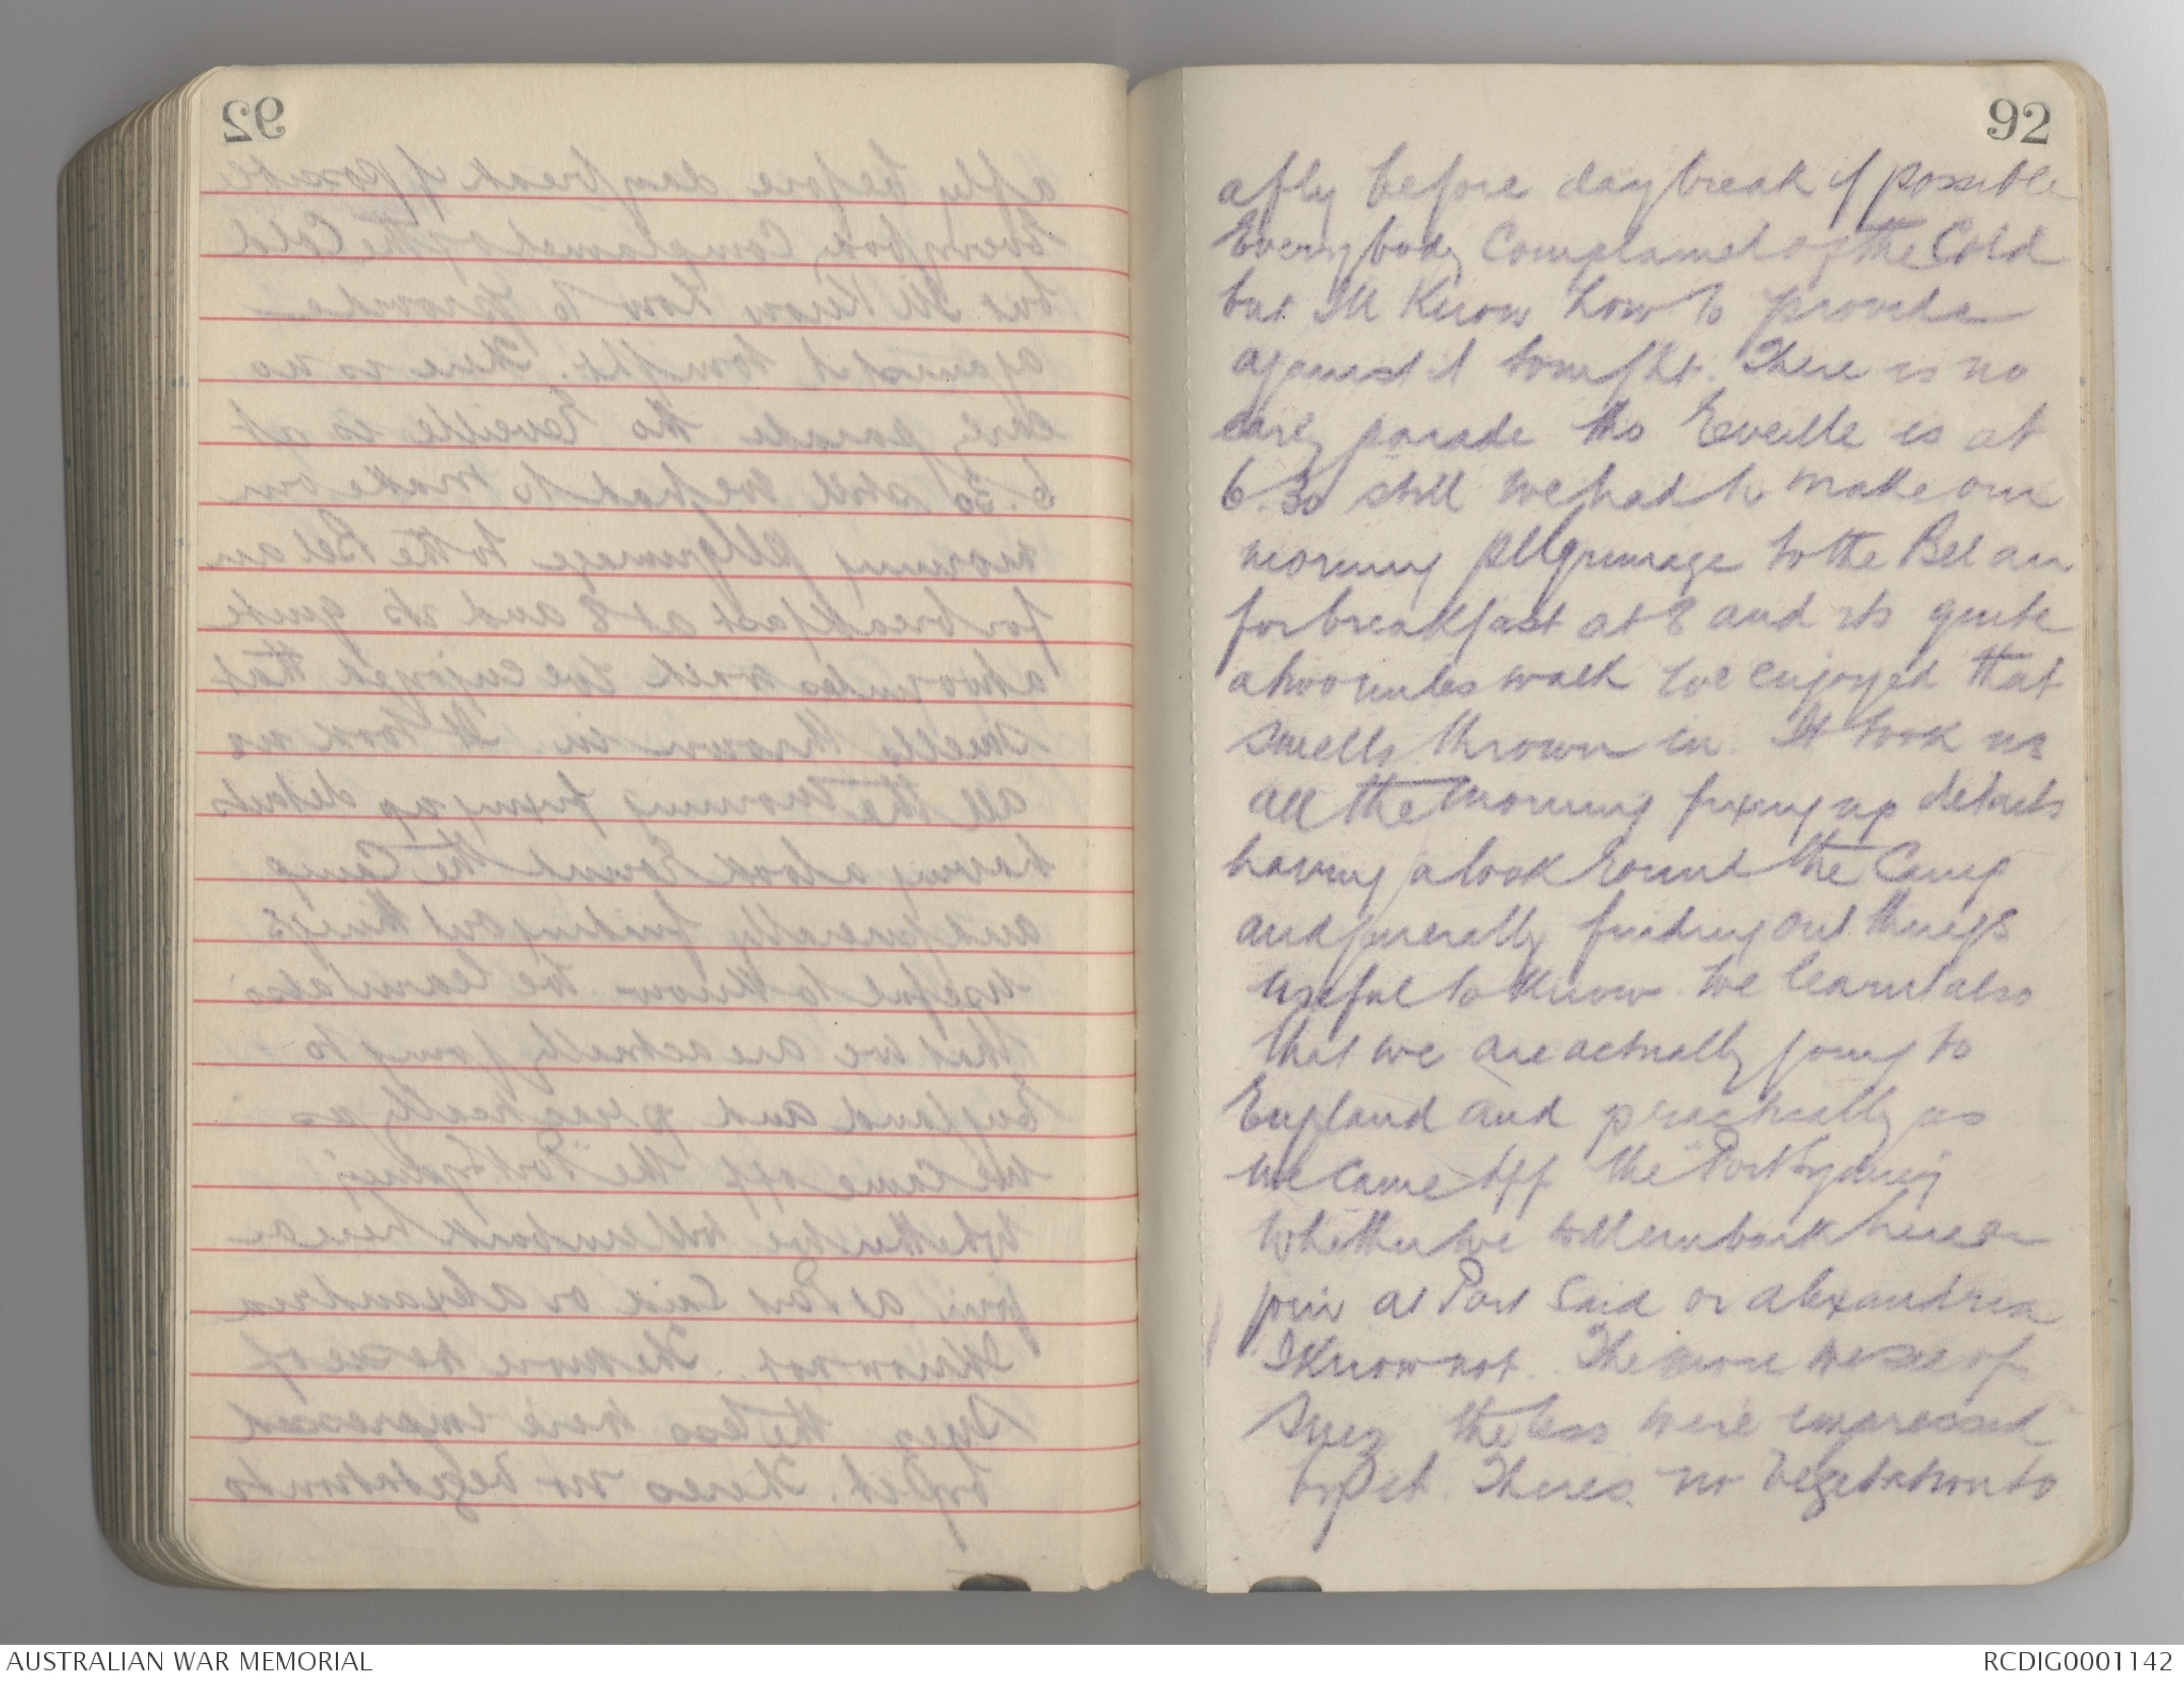 92
92
before daybreak if possible
Everybody Complained of the Cold
but Ill Know how to provide
against it tonight. There is no
early parade tho Reveille is at
6.30 still we had to make our
morning pilgrimage to the Bel air
for breakfast at 8 and its quite
a two miles walk we enjoyed that
smells thrown in. It took us
all the morning fixing up details
having a look round the Camp
and generally finding out things
useful to Know. We learnt also
that we are actually going to
England and practically as
we came off the "Port Sydney"
Whether we will embark here or
join at Port Said or alexandria
I Know not. The more we see of
Suez the less were impressed
by it. Theres no vegetation to
AUSTRALIAN WAR MEMORIAL
RCDIG0001142